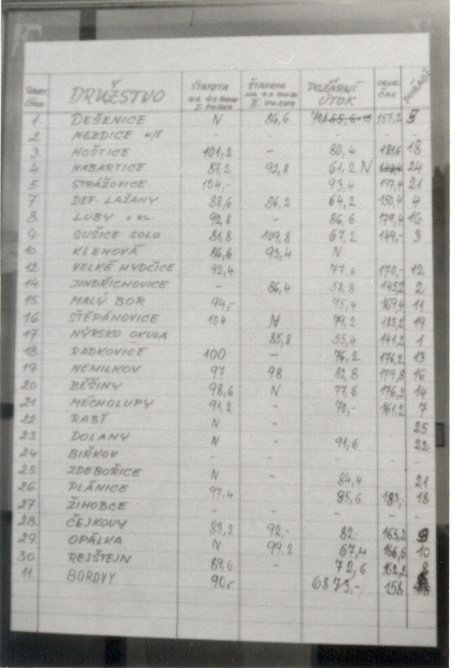 START. ČÍSLO DRUŽSTVO ŠTAFETA I. POKUS ŠTAFETA II. POKUS POŽÁRNÍ ÚTOK CELK. ČAS POŘADÍ
1 DEŠENICE N 86,6 157,2 5
2 NEZDICE -
3 HOŠTICE 101,2 - 80,4 181,6 18
4 HABARTICE 87,2 92,8 61,2 N 24
5 STRÁŽOVICE 104,- 93,4 197,4 21
7 DEF. LAŽANY 88,6 86,2 64,2 150,4 4
8 LUBY 92,8 - 86,6 179,4 16
9 SUŠICE SOLO 81,8 109,8 67,2 149,- 3
10 KLENOVÁ 86,6 93,4 N
12 VELKÉ HYDČICE 92,4 77,6 170,- 12
14 JINDŘICHOVICE - 86,4 58,8 145,2 2
15 MALÝ BOR 94,- 75,4 169,4 11
16 ŠTĚPÁNOVICE 104 N 79,2 183,2 19
17 NÝRSKO OKULA 85,8 55,4 141,2 1
18 RADKOVICE 100 - 76,2 176,2 13
19 NEMILKOV 97 98 82,8 179,8 16
20 BĚŠINY 98,6 N 77,6 176,2 14
21 MĚCHOLUPY 91,2 - 70,- 161,2 7
22 RABÍ N - 25
23 DOLANY N - 91,6 22
24 BIŘKOV - - -
25 ZDEBOŘICE N - 84,4 21
26 PLÁNICE 97,4 85,6 183,- 18
27 ŽIHOBCE - - -
28 ČEJKOVY 83,2 92,- 82,- 165,2 9
29 OPÁLKA N 99,2 67,4 166,6 10
30 REJŠTEJN 89,6 - 72,6 162,2 8
11 BOROVY 90,- 158